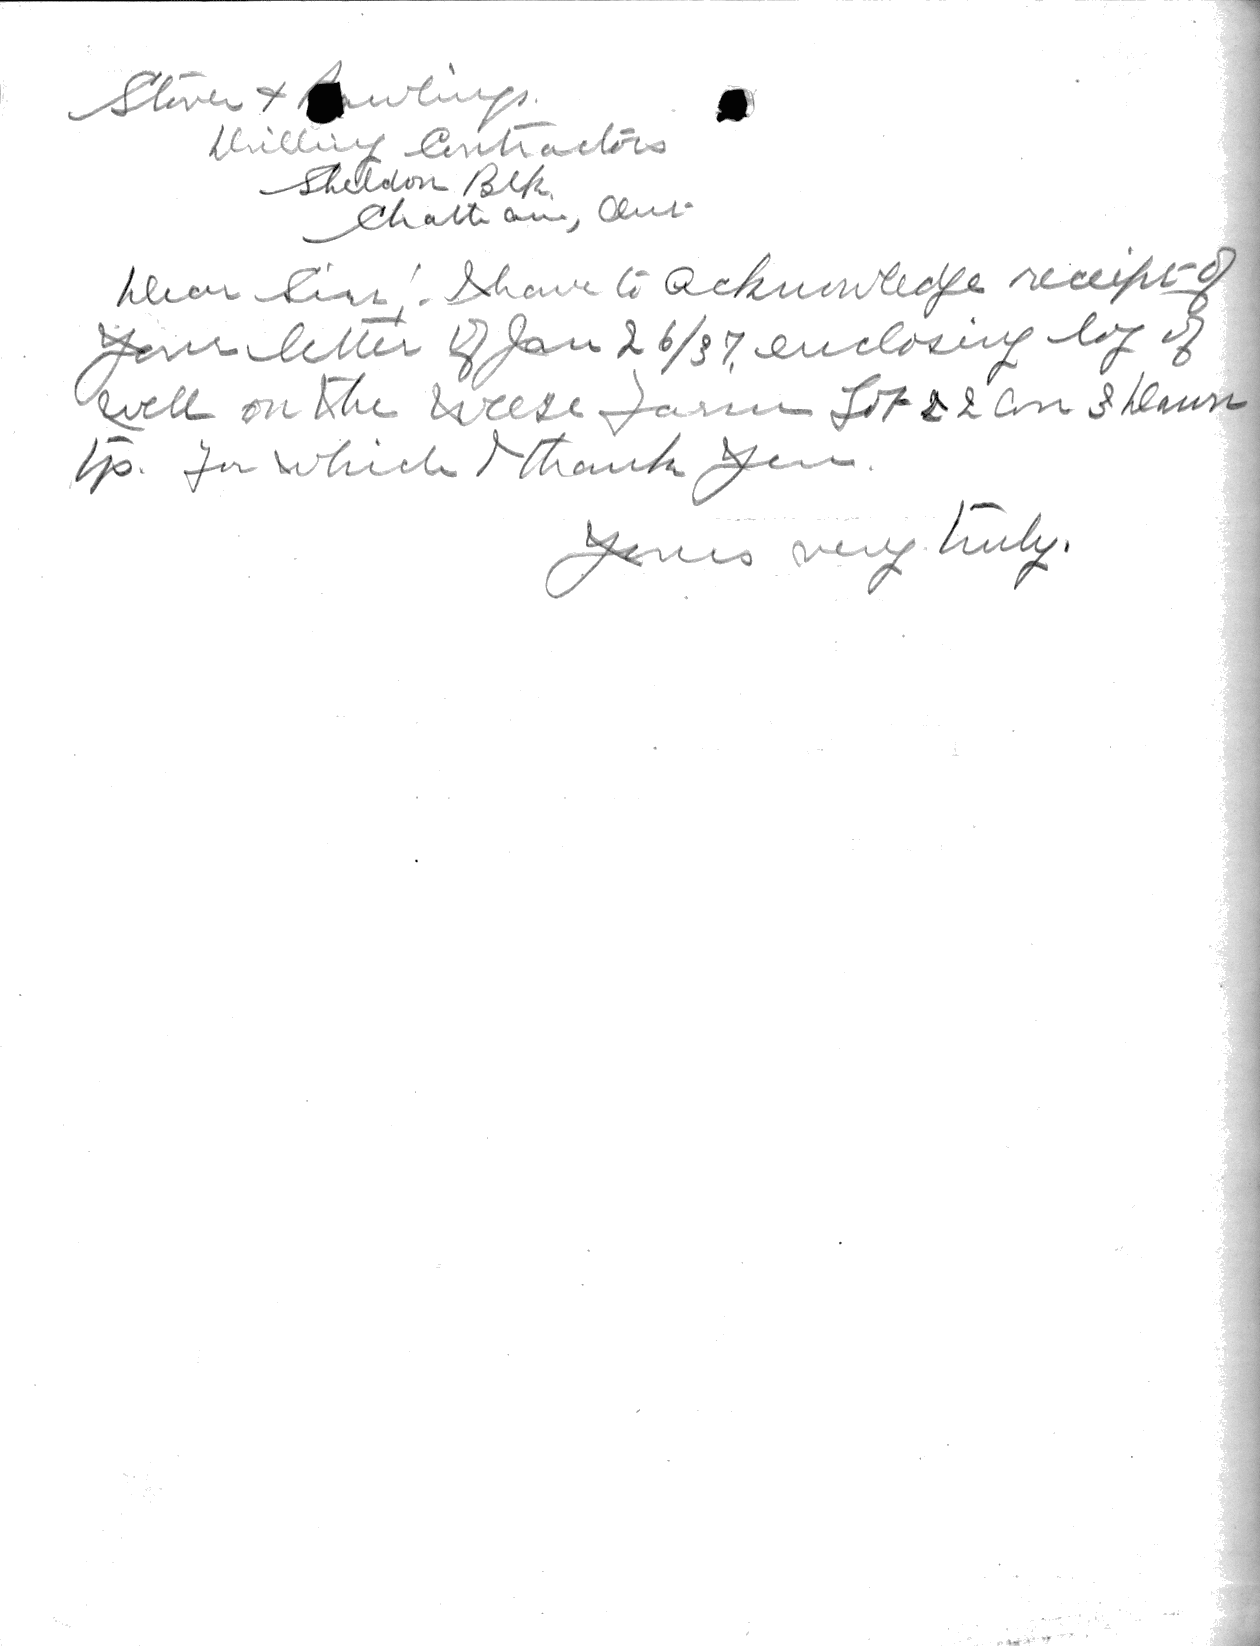 Stover + Rawlings.
Drilling Contractors
Sheldon Blk.
Chatham, Ont
Dear Sirs; I have to acknowledge receipt of
your letter of Jan 26/37, enclosing log of
well on the Weese farm Lot 22 Con 3 Dawn
Tp. for which I thank you.
Yours very truly.